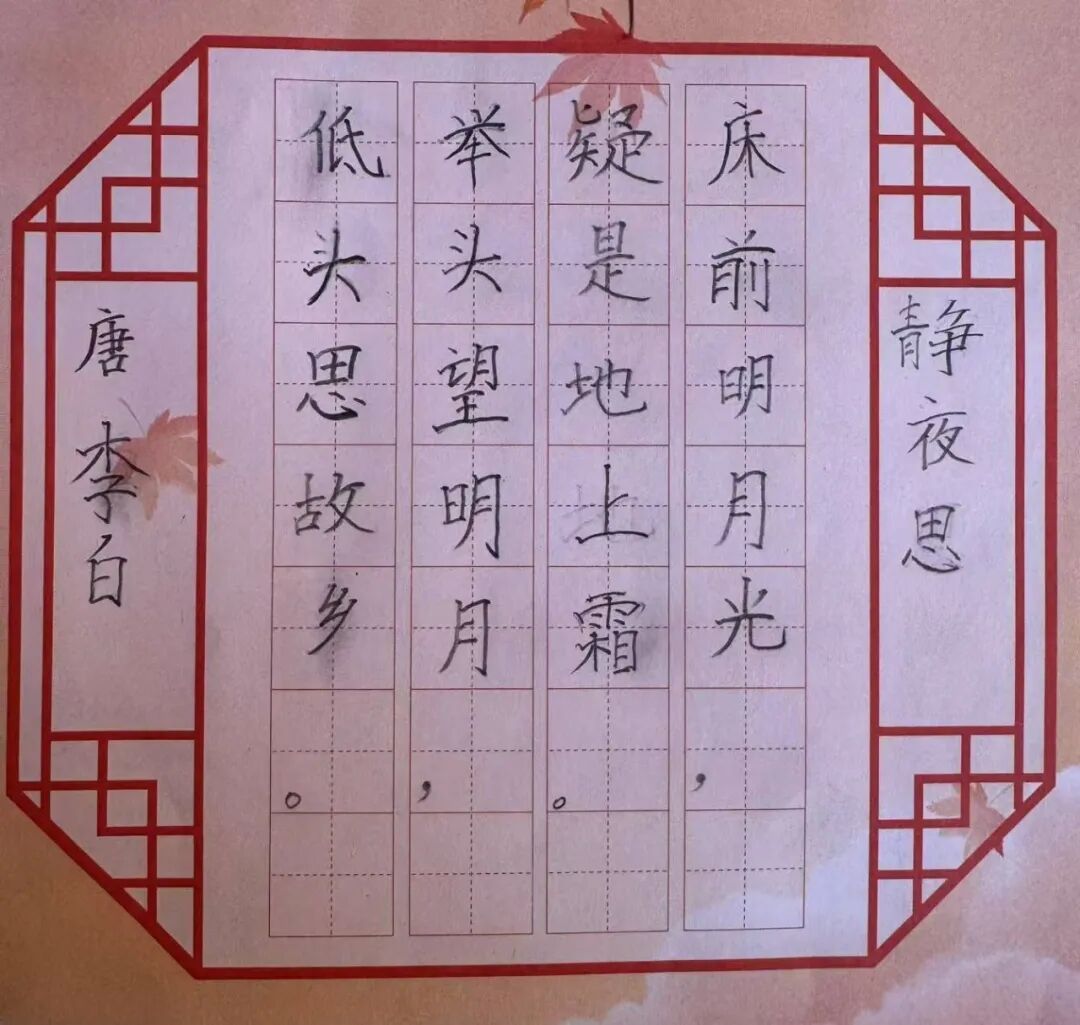 静夜思
床前明月光，
疑是地上霜。
举头望明月，
低头思故乡。
唐 李白